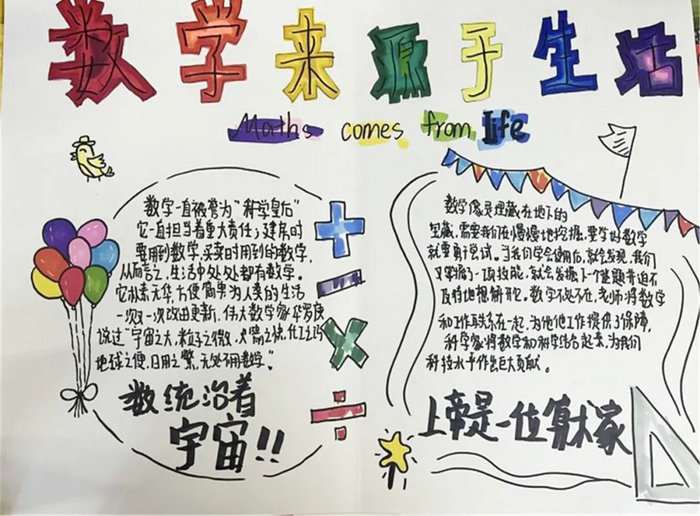 数学来源于生活
Maths comes from life
数学一直被誉为“科学皇后”
它一直担当着重大责任，建房时
要用到数学，买卖时用到的数学，
从而言之，生活中处处都有数学。
它朴素无华，方便简单为人类的生活
一次一次改由更新，伟大数学家华罗庚
说过“宇宙之大，粒子之微，火箭之快，化工之巧
地球之便，日用之繁，无处不用数学。”
数统治着
宇宙!!
数学像是埋藏在地下的
宝藏，需要我们在慢慢地挖掘，要学好数学
就要勇于尝试。当我们学会使用后，就会发现，我们
又掌握了一项技能，就会发掘下个
地想解开它。数学不可不在，
和工作联系在一起，为他们工作提供了保障，
科学家将数学和科学结合起来，为我们
科技水平作出巨大贡献。
上帝是一位算术家